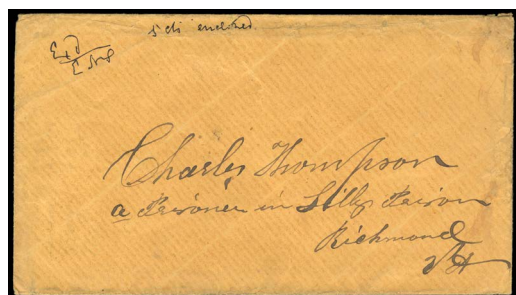 5 cts enclosed
Exd
Charles Thompson
a Prisoner in Libby Prison
Richmond
Va